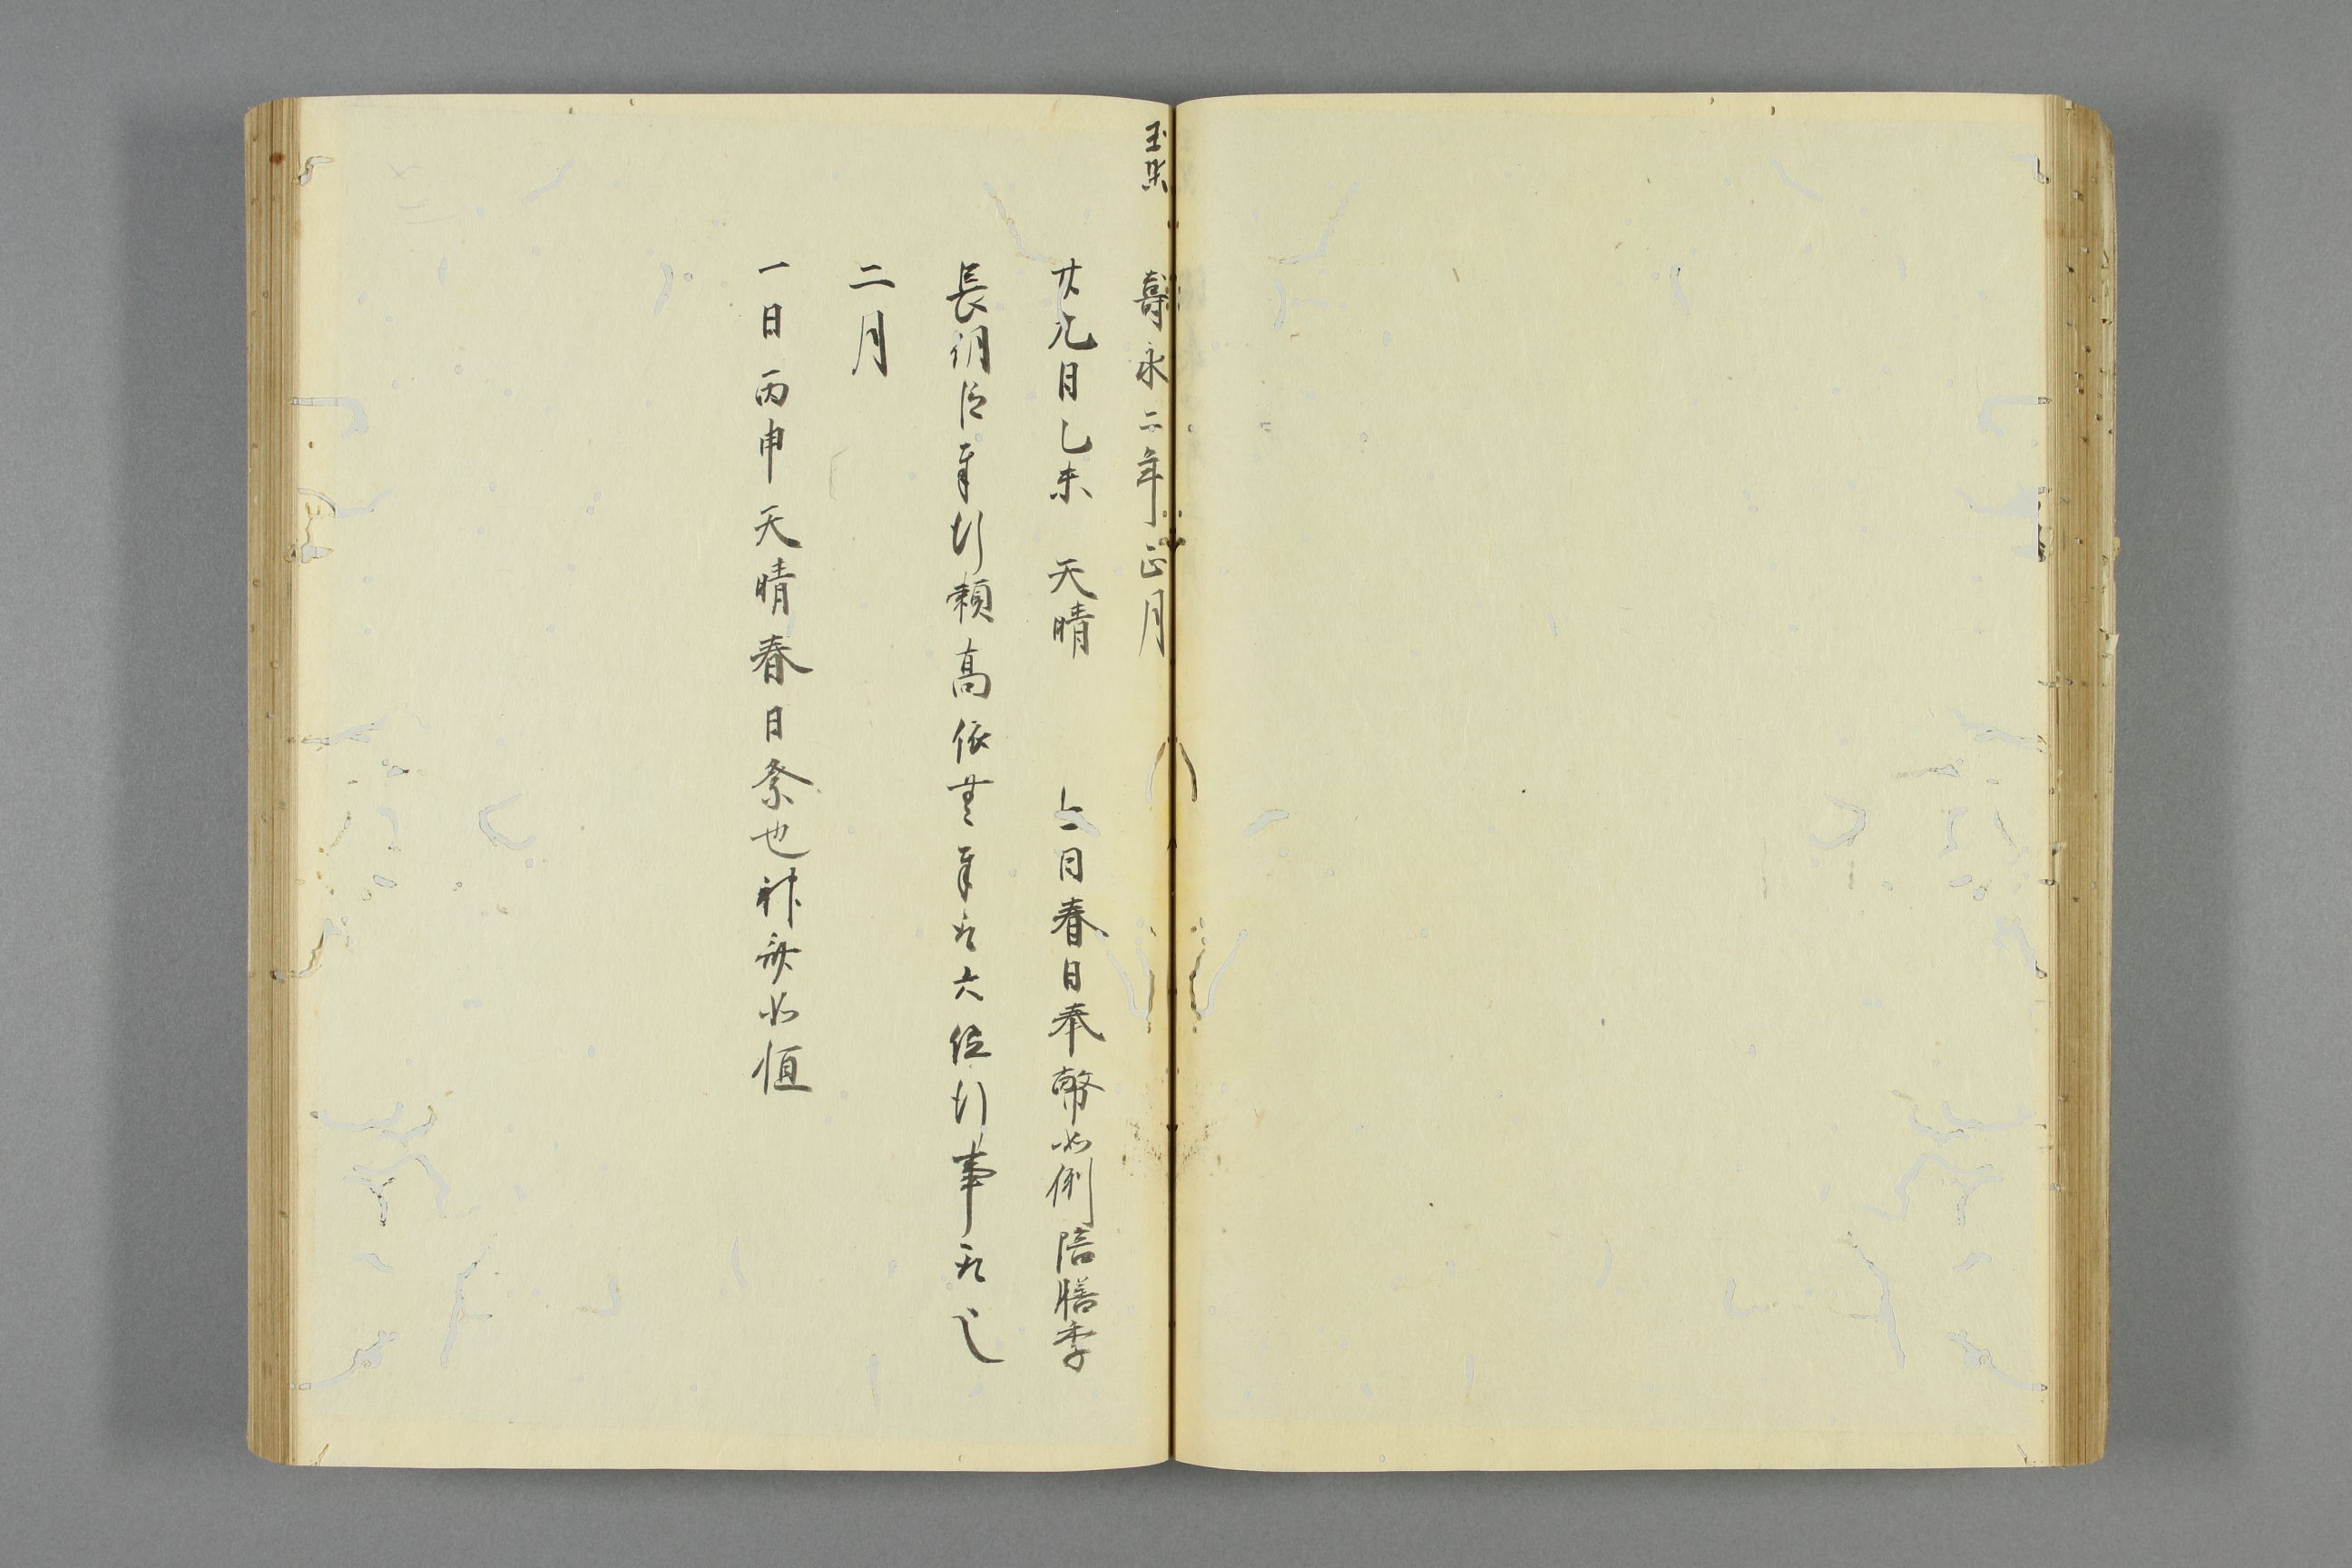 玉葉
壽永二年正月
廿九日乙未　天晴　日春日奉幣如例陪膳季
長朝臣奉行頼高依無奉六位行事
二月
一日丙申天晴春日祭也神斎如恒